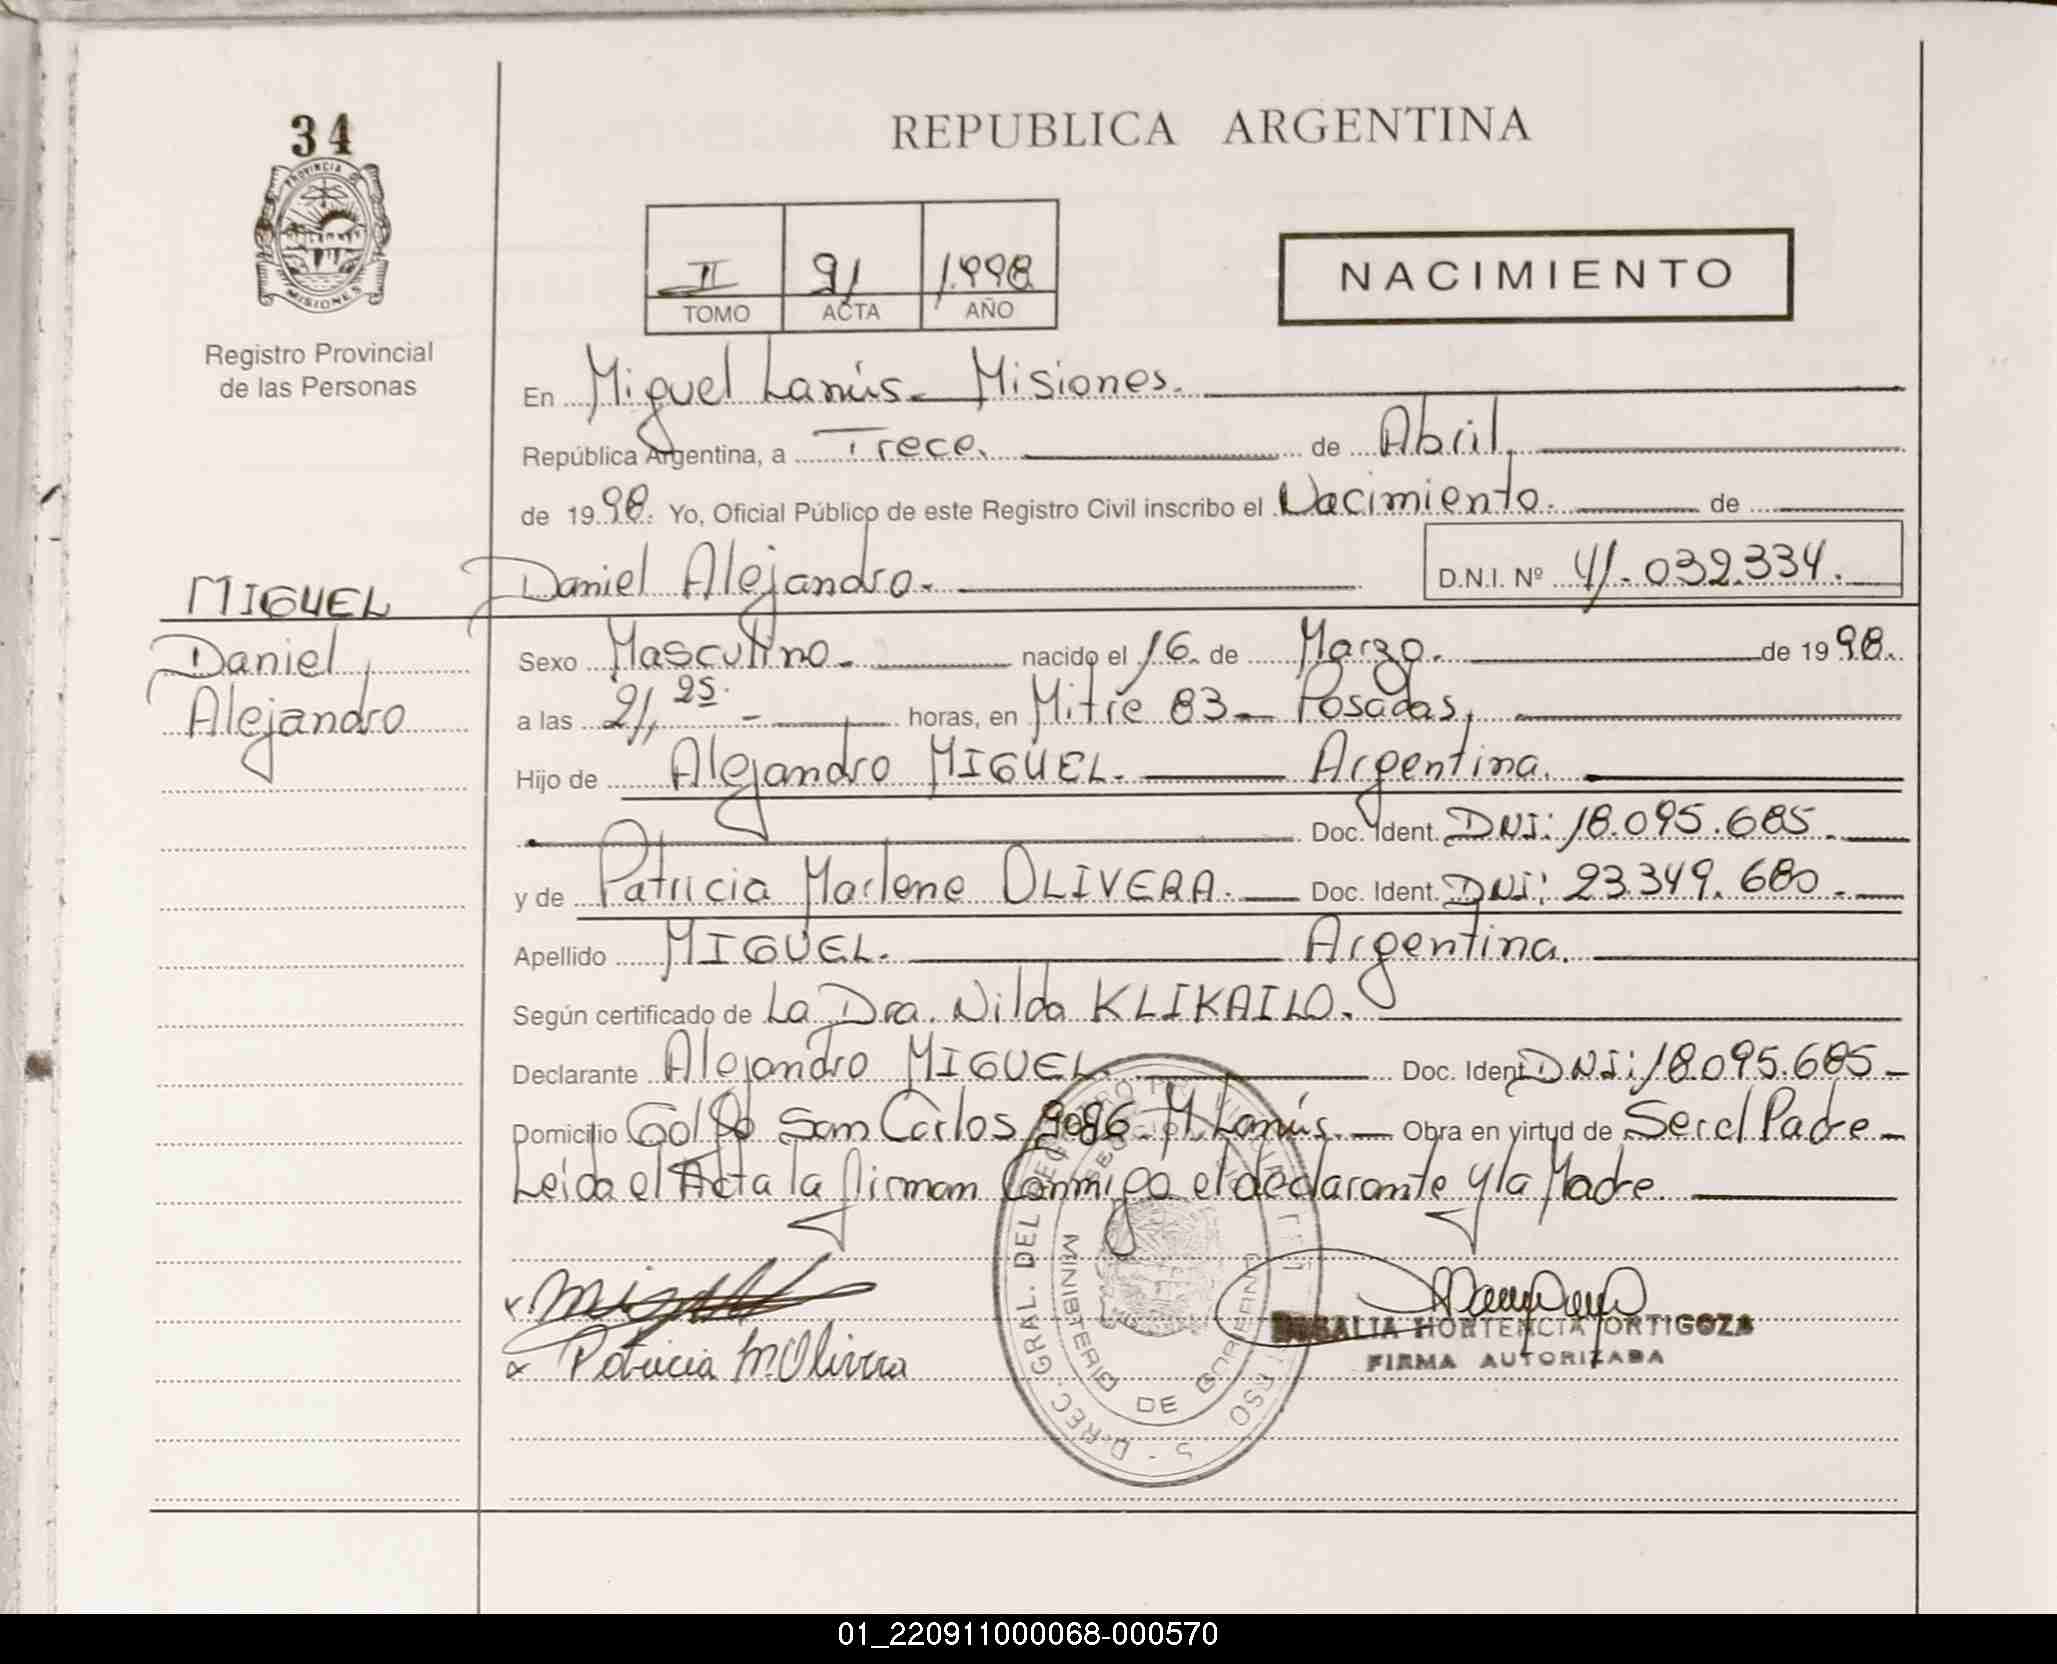 34
PROVINCIA DE
MISIONES
Registro Provincial
de las Personas
REPUBLICA ARGENTINA
II 91 1.998
TOMO ACTA AÑO
NACIMIENTO
En Miguel Lanús - Misiones.
República Argentina, a Trece. de Abril.
de 1998. Yo, Oficial Público de este Registro Civil inscribo el Nacimiento. de
Daniel Alejandro. D.N.I. Nº 41.032.334.
MIGUEL
Daniel
Alejandro
Sexo Masculino. nacido el 16. de Marzo. de 1998.
a las 21,25. horas, en Mitre 83 - Posadas,
Hijo de Alejandro MIGUEL. Argentina.
Doc. Ident. DNI: 18.095.685.
y de Patricia Marlene OLIVERA. Doc. Ident. DNI: 23.349.680.
Apellido MIGUEL. Argentina.
Según certificado de La Dra. Nilda KLIKAILO.
Declarante Alejandro MIGUEL. Doc. Ident DNI: 18.095.685
Domicilio Golfo San Carlos 9086. M. Lanús. Obra en virtud de Ser el Padre
Leida el Acta la firman Conmigo el declarante y la Madre.
Patricia M. Olivera
HORTENCIA ORTIGOZA
FIRMA AUTORIZADA
D. REC. GRAL. DEL
MINISTERIO DE GOBIERNO
01_220911000068-000570